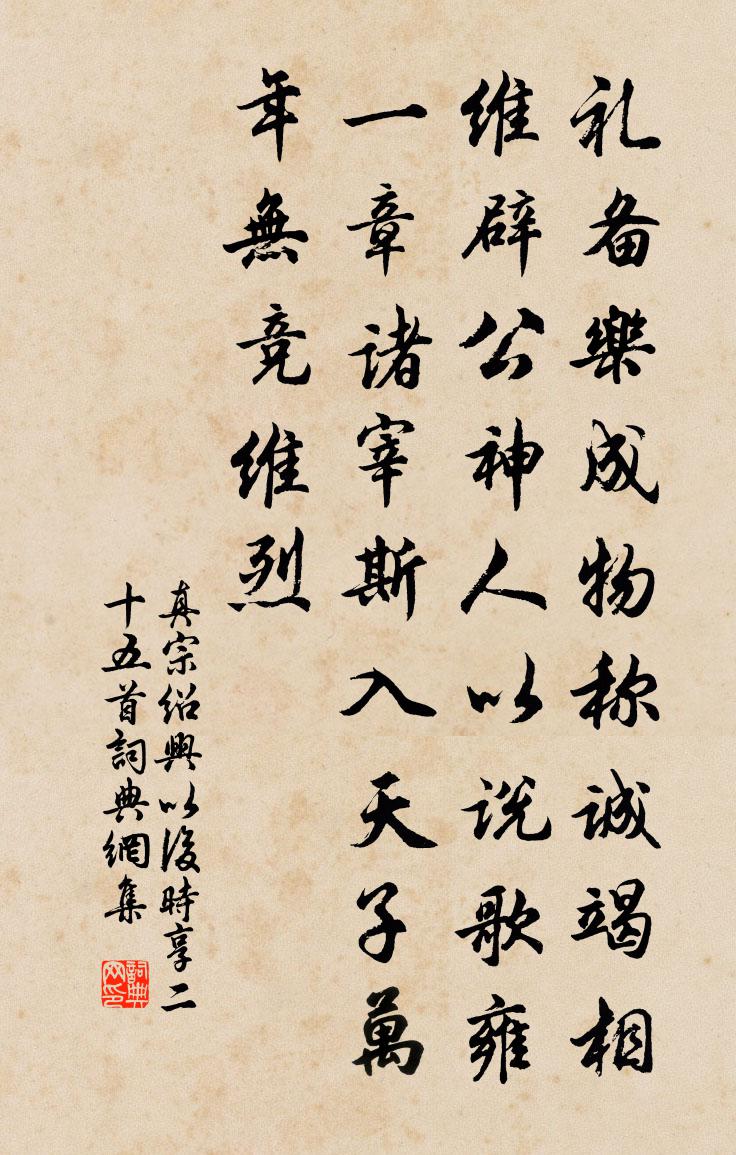 礼备樂成物称诚竭相
维辟公神人以说歌雍
一章诸宰斯入天子萬
年無竞维烈
真宗绍興以後時享二
十五首詞典網集
詞典
网印